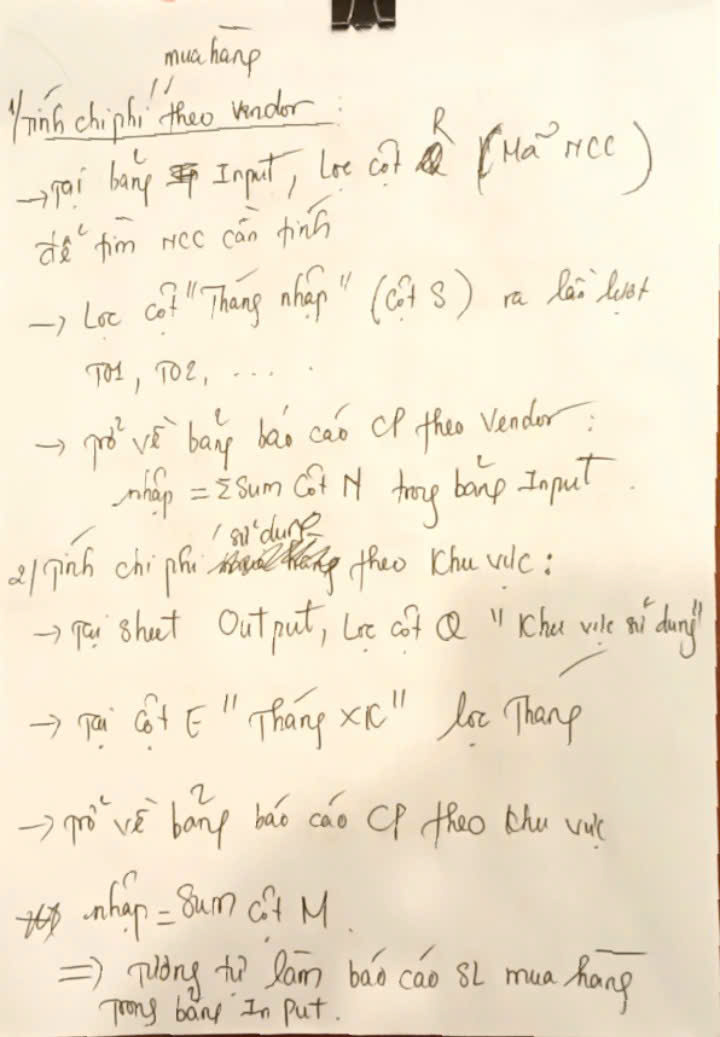 mua hàng
1/ Tính chi phí theo Vendor :
→ Tại bảng Input, Lọc cột R (Mã NCC)
để tìm NCC cần tính
→ Lọc cột "Tháng nhập" (cột S) ra lần lượt
T01, T02, ....
→ trở về bảng báo cáo CP theo Vendor :
nhập = Σ Sum cột N trong bảng Input .
sử dụng
2/ Tính chi phí theo Khu vực :
→ Tại Sheet Output, Lọc cột Q "Khu vực sử dụng"
→ Tại cột E "Tháng XK" lọc Tháng
→ trở về bảng báo cáo CP theo khu vực
nhập = Sum cột M .
=> Tương tự làm báo cáo SL mua hàng
Trong bảng Input .